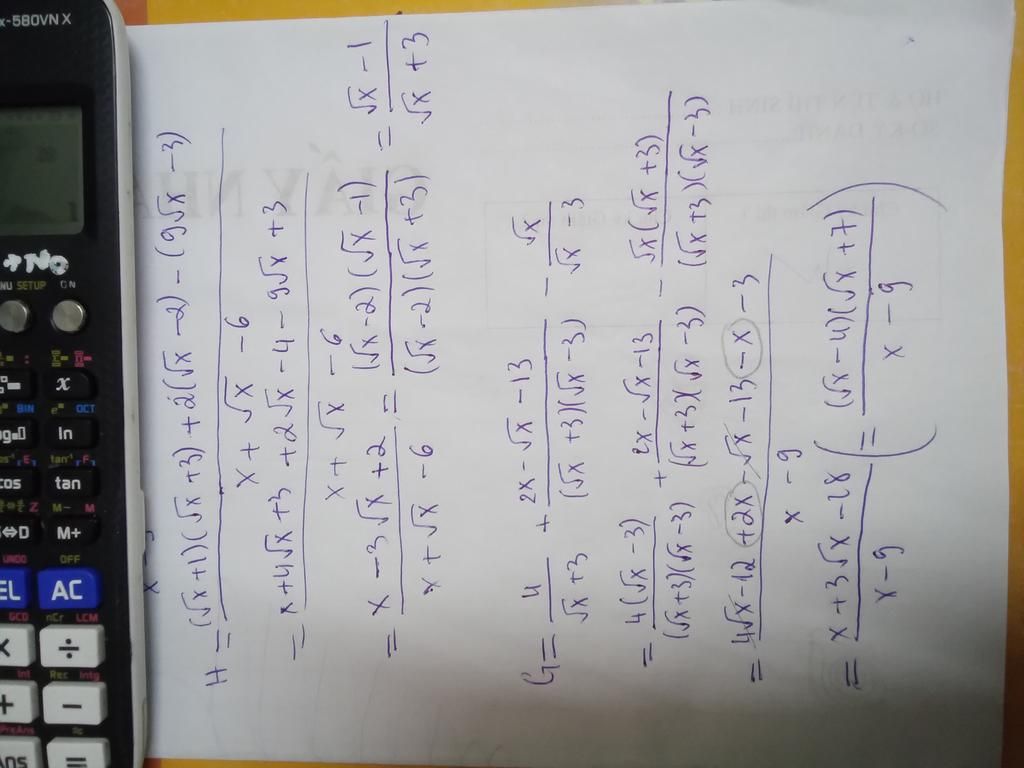 x-580VN X
MENU SETUP ON
x
BIN OCT
ln
tan⁻¹ F
cos tan
M− M
S⇔D M+
UNDO OFF
DEL AC
GCD nCr LCM
× ÷
Int Rec Intg
+ −
PreAns ≈
Ans =
H = ((√x +1)(√x +3) + 2(√x −2) − (9√x −3))/(x + √x − 6)
= (x + 4√x + 3 + 2√x − 4 − 9√x + 3)/(x + √x − 6)
= (x − 3√x + 2)/(x + √x − 6) = ((√x −2)(√x −1))/((√x −2)(√x +3)) = (√x − 1)/(√x + 3)
G = 4/(√x +3) + (2x − √x −13)/((√x +3)(√x −3)) − √x/(√x − 3)
= (4(√x −3))/((√x+3)(√x −3)) + (2x − √x −13)/((√x +3)(√x −3)) − (√x(√x +3))/((√x +3)(√x −3))
= (4√x −12 +2x − √x −13 − x − 3)/(x − 9)
= (x + 3√x − 28)/(x − 9) ( = ((√x −4)(√x +7))/(x − 9) )